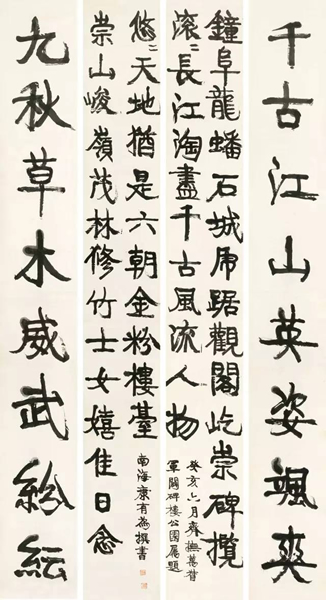 千古江山英姿颯爽
鐘阜龍蟠石城虎踞觀閣屹崇碑攬
滾〻長江淘盡千古風流人物
癸亥七月齊撫萬督
軍閱碑樓公園屬題
崇山峻嶺茂林修竹士女嬉佳日念
悠〻天地猶是六朝金粉樓臺
南海康有為撰書
九秋草木威武紛紜